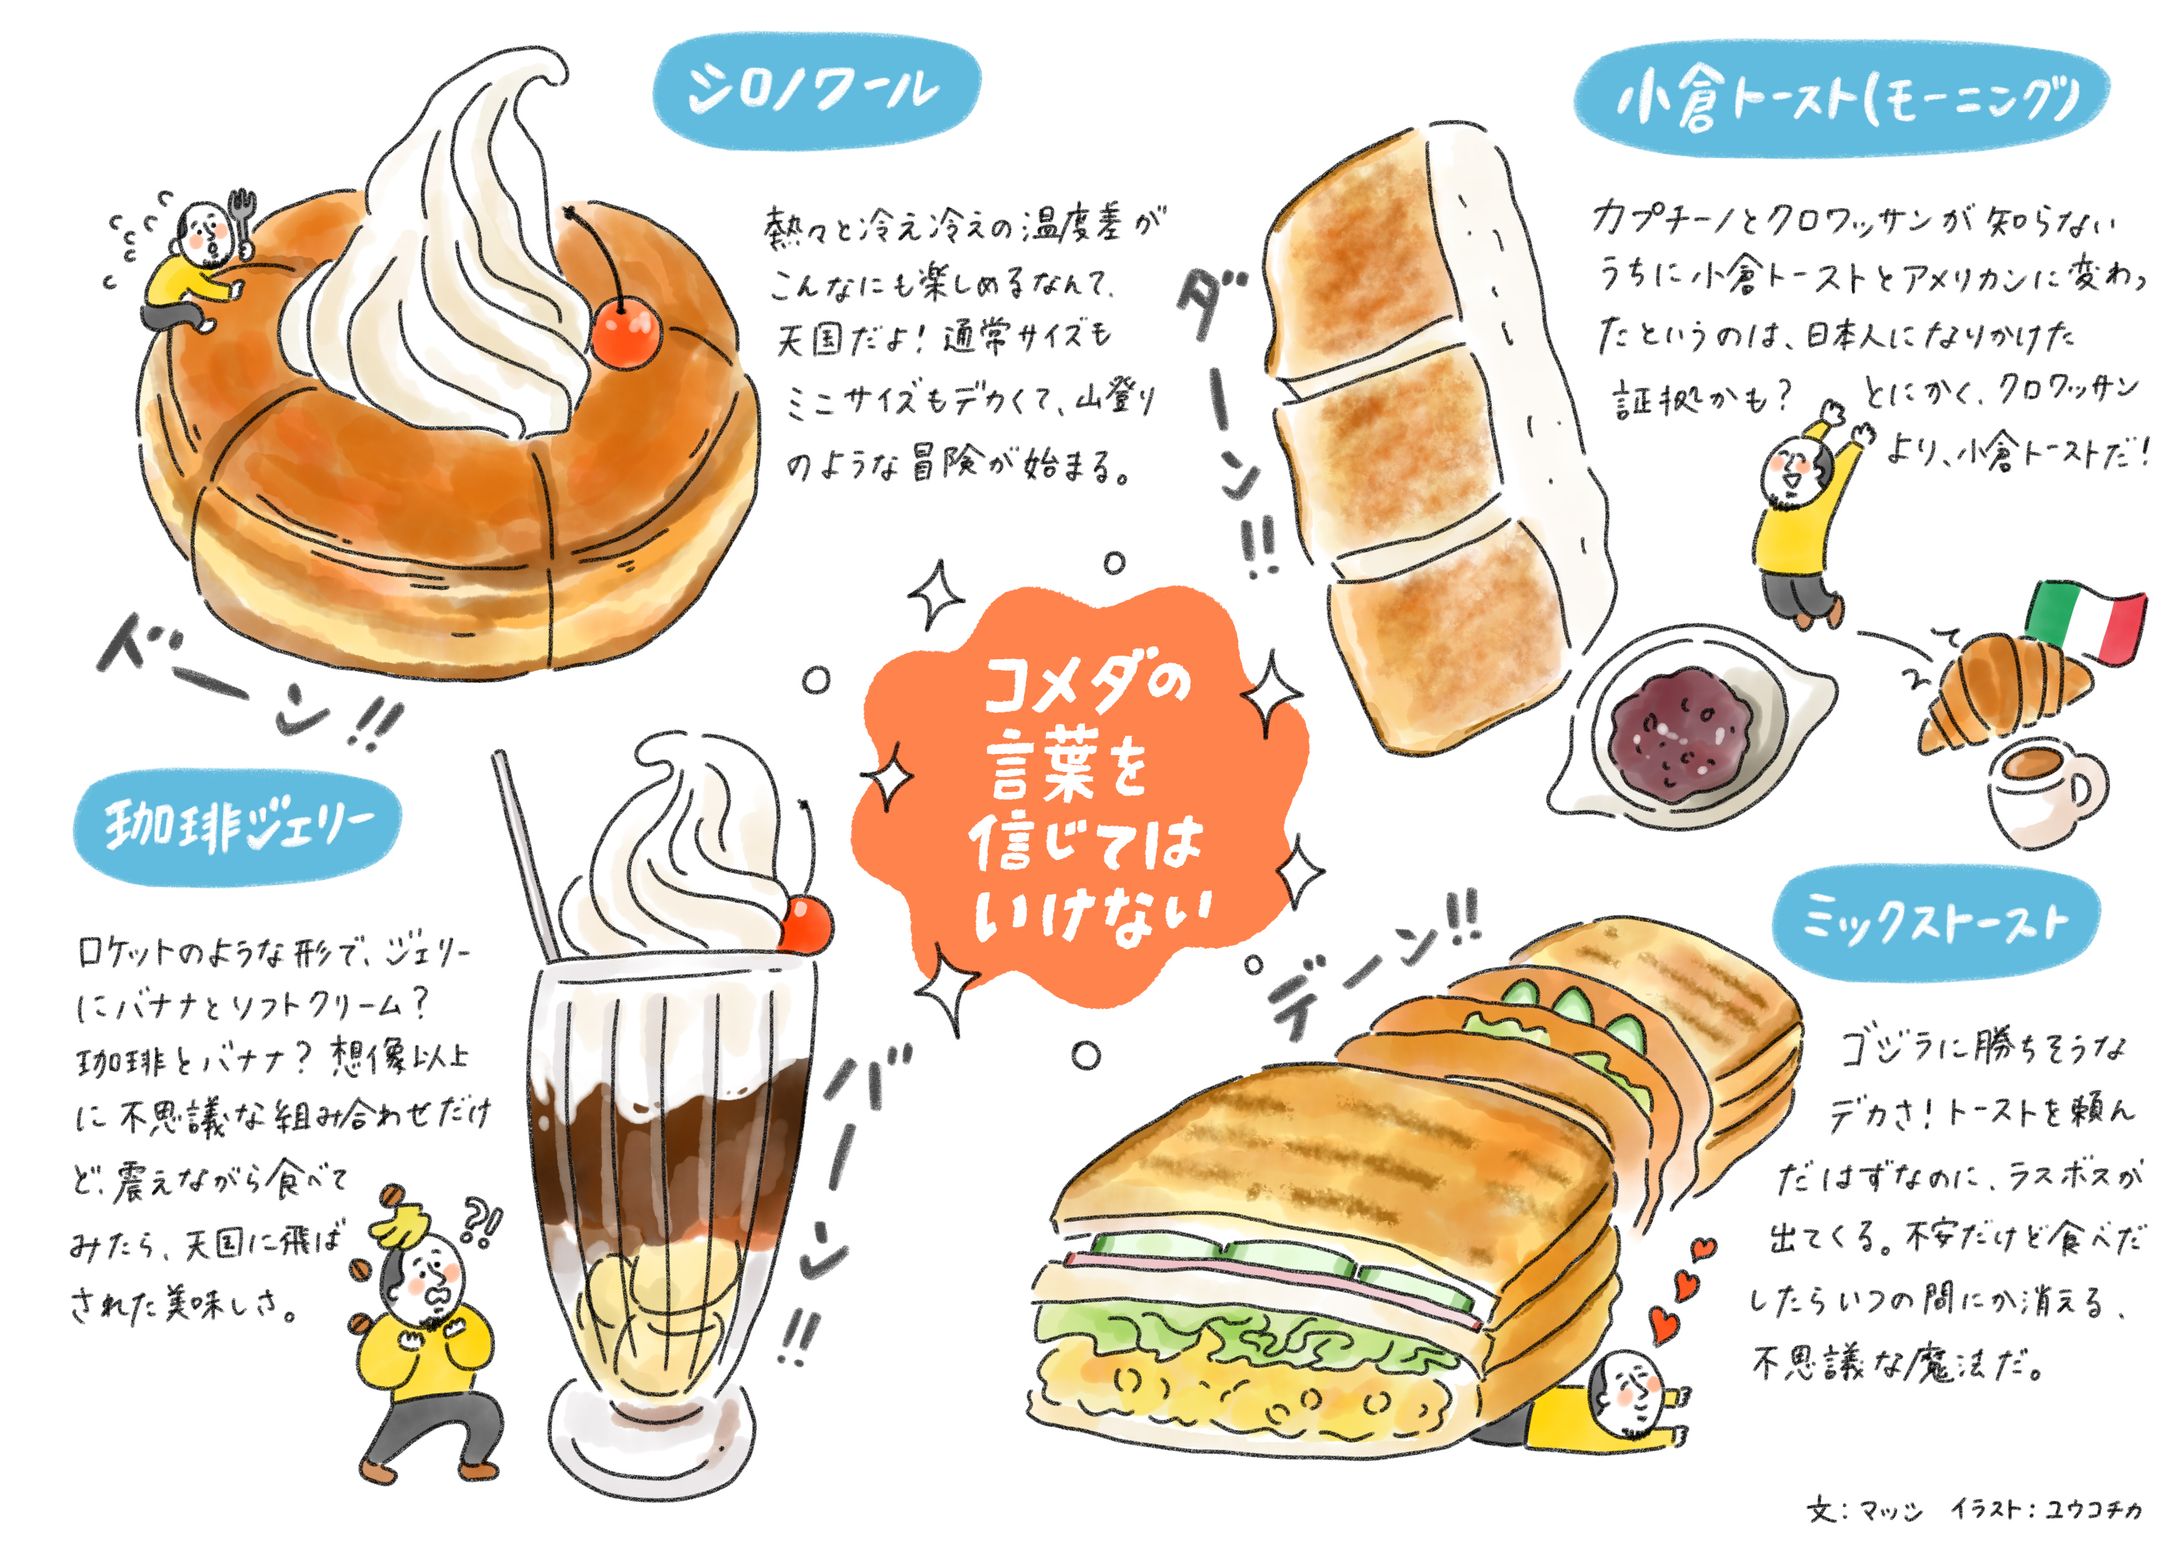 シロノワール
熱々と冷え冷えの温度差が
こんなにも楽しめるなんて、
天国だよ！通常サイズも
ミニサイズもデカくて、山登り
のような冒険が始まる。
ドーン!!
小倉トースト(モーニング)
カプチーノとクロワッサンが知らない
うちに小倉トーストとアメリカンに変わっ
たというのは、日本人になりかけた
証拠かも？ とにかく、クロワッサン
より、小倉トーストだ！
ダーン!!
コメダの
言葉を
信じては
いけない
珈琲ジェリー
ロケットのような形で、ジェリー
にバナナとソフトクリーム？
珈琲とバナナ？想像以上
に不思議な組み合わせだけ
ど、震えながら食べて
みたら、天国に飛ば
された美味しさ。
?!
バーン!!
ミックストースト
ゴジラに勝ちそうな
デカさ！トーストを頼ん
だはずなのに、ラスボスが
出てくる。不安だけど食べだ
したらいつの間にか消える、
不思議な魔法だ。
デーン!!
文：マッシ イラスト：ユウコチカ